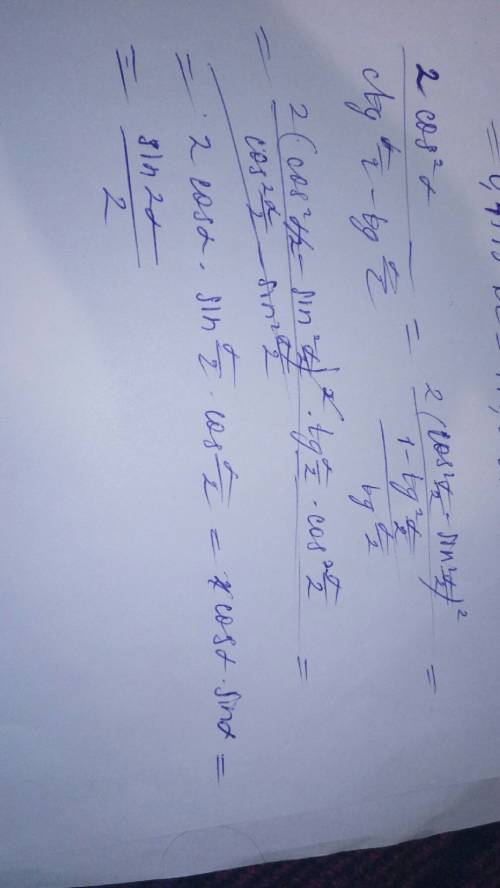 2 cos²α / (ctg α/2 − tg α/2) = 2(cos² α/2 − sin² α/2)² / ((1 − tg² α/2) / tg α/2) =
= 2(cos² α/2 − sin² α/2)² · tg α/2 · cos² α/2 / (cos² α/2 − sin² α/2) =
= 2 cosα · sin α/2 · cos α/2 = cosα · sinα =
= sin 2α / 2